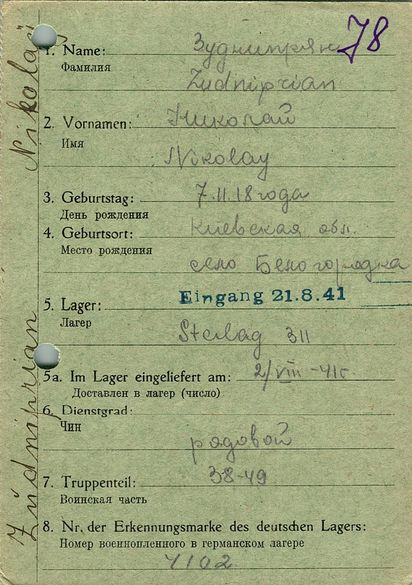 78
1. Name: Зуднипрян
Фамилия
Zudniprian
2. Vornamen: Николай
Имя
Nikolay
3. Geburtstag: 7.11.18 года
День рождения
4. Geburtsort: Киевская обл.
Место рождения
село Белогородка
Eingang 21.8.41
5. Lager:
Лагер
Stalag 311
5a. Im Lager eingeliefert am: 2/VIII-41г.
Доставлен в лагер (число)
6. Dienstgrad:
Чин
рядовой
7. Truppenteil: 38-49
Воинская часть
8. Nr. der Erkennungsmarke des deutschen Lagers:
Номер военнопленного в германском лагере
4102
Züdniprian Nikolaj